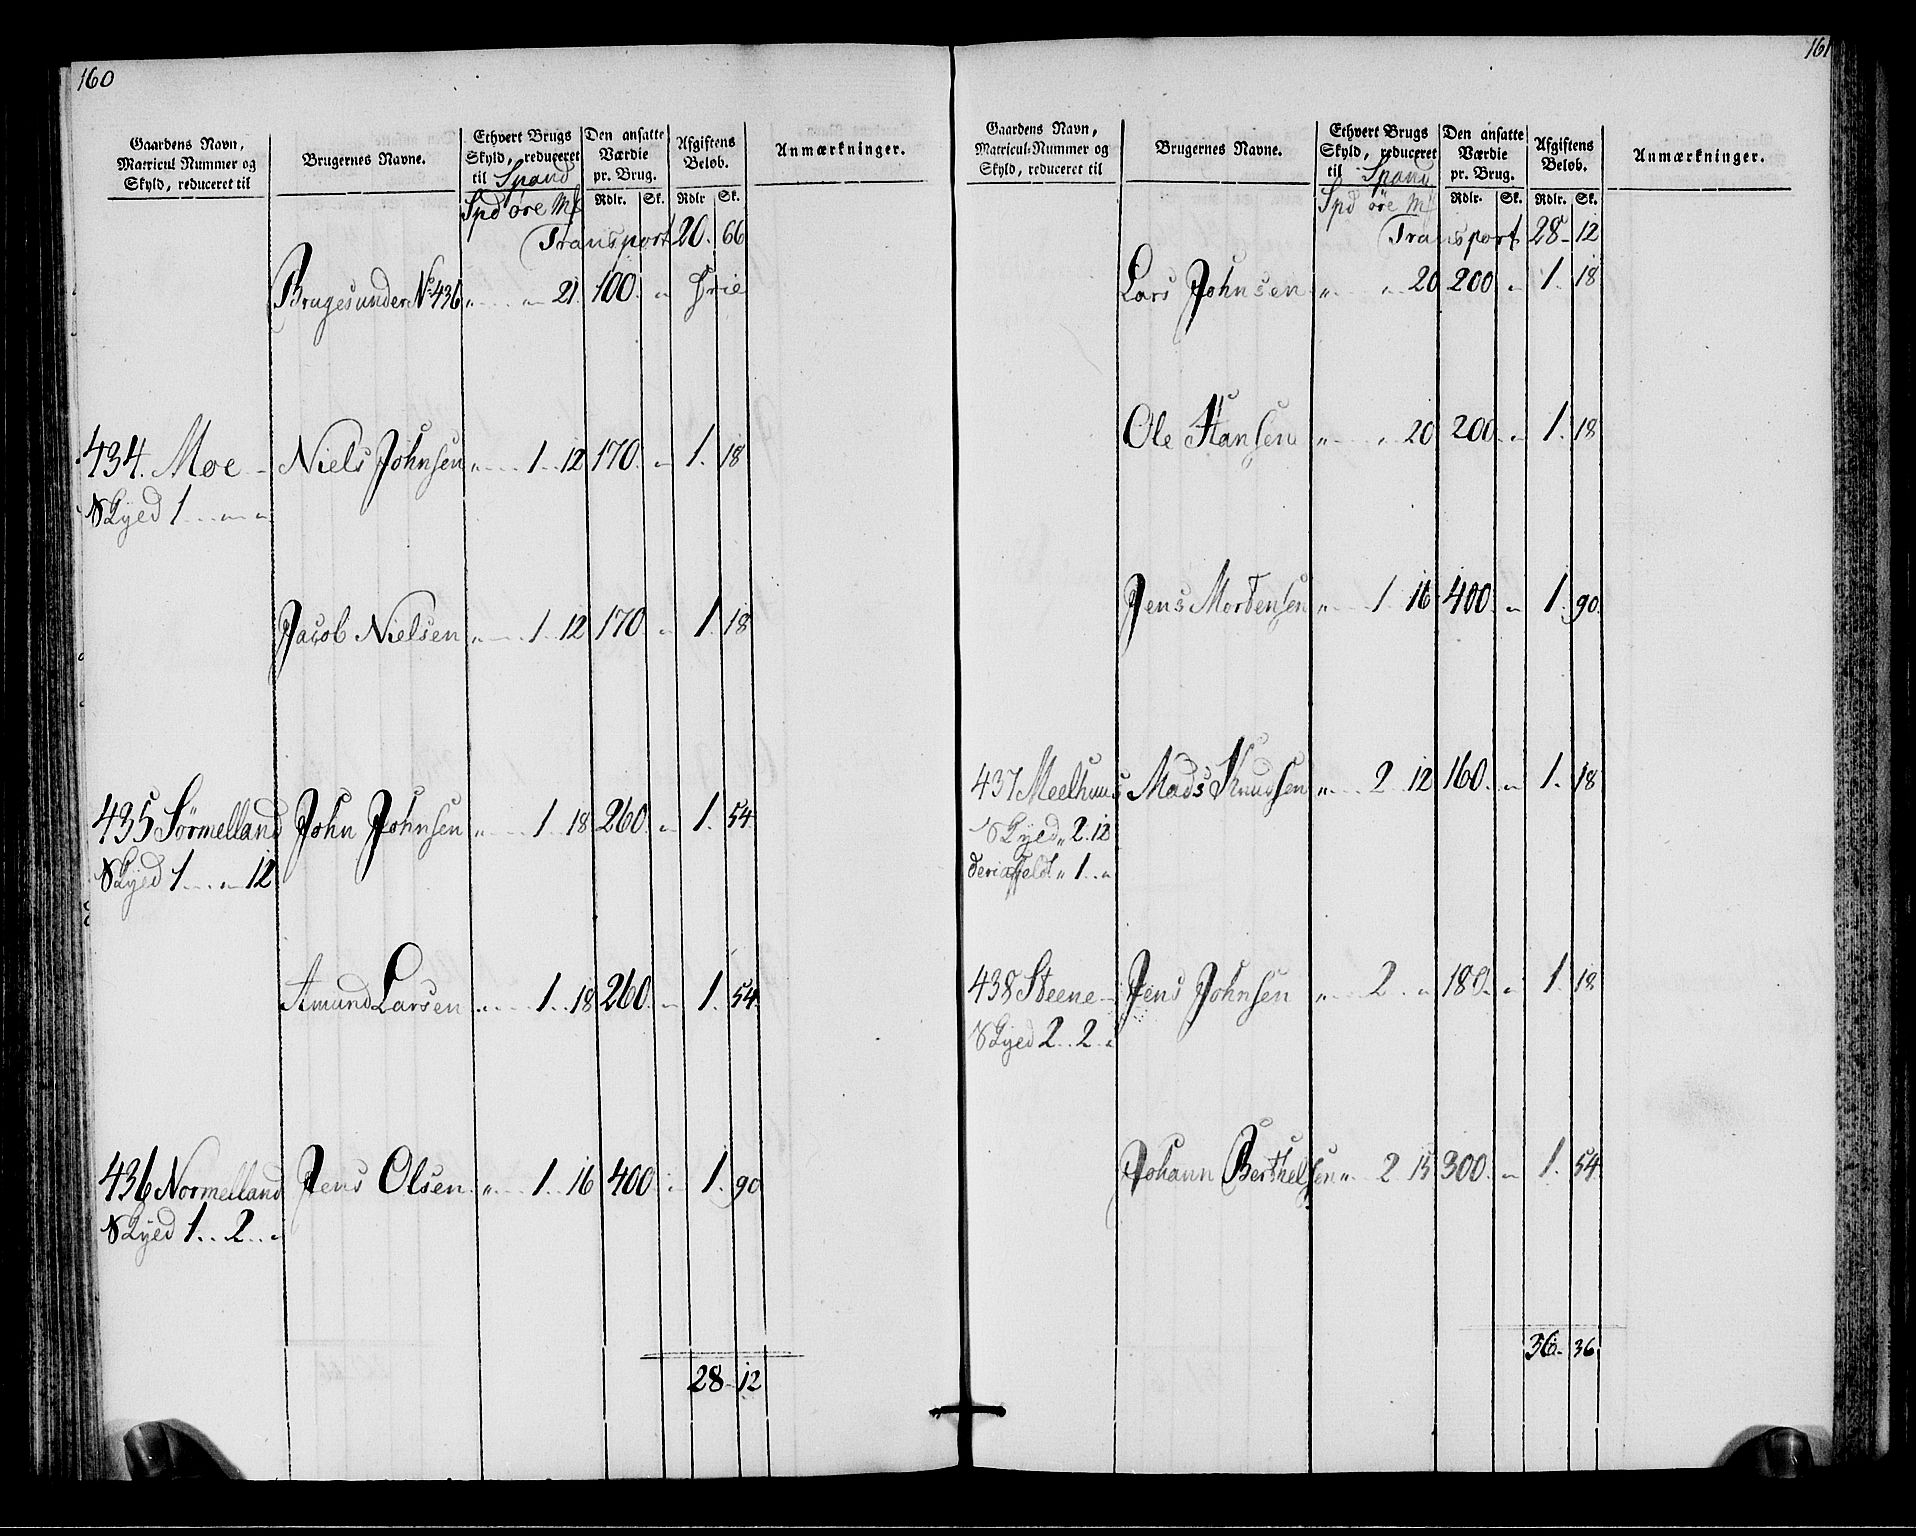 160
Gaardens Navn, Matricul Nummer og Skyld, reduceret til | Brugernes Navne. | Ethvert Brugs Skyld, reduceret til Spand | Den ansatte Værdie pr. Brug. | Afgiftens Beløb. | Anmærkninger.
Spd øre Mk | Rdlr. Sk. | Rdlr Sk.
Transport 20. 66
Bruges under No. 436 „ „ 21 100 „ Frie
434. Moe Niels Johnsen „ 1 12 170. „ 1. 18
Skyld 1 „ „
Jacob Nielsen „ 1 12 170. „ 1. 18
435 Sørmelland John Johnsen „ 1 18 260. „ 1. 54
Skyld 1 „ 12
Amund Larsen „ 1 18 260. „ 1. 54
436 Normelland Jens Olsen „ 1 16 400 „ 1. 90
Skyld 1 2 „
28 12
161
Gaardens Navn, Matricul-Nummer og Skyld, reduceret til | Brugernes Navne. | Ethvert Brugs Skyld, reduceret til Spand | Den ansatte Værdie pr. Brug. | Afgiftens Beløb. | Anmærkninger.
Spd øre Mk | Rdlr. Sk. | Rdlr. Sk.
Transport 28 12
Lars Johnsen „ „ 20 200 „ 1. 18
Ole Hansen „ „ 20 200. „ 1. 18
Jens Mortensen „ 1 16 400. „ 1. 90
437 Meelhuus Mads Knudsen „ 2 12 160. „ 1. 18
Skyld „ 2. 12
„ 1 „
438 Steene Jens Johnsen „ 2 „ 180. „ 1. 18
Skyld 2 2 „
Johann Berthelsen „ 2 15 300. „ 1. 54
36. 36